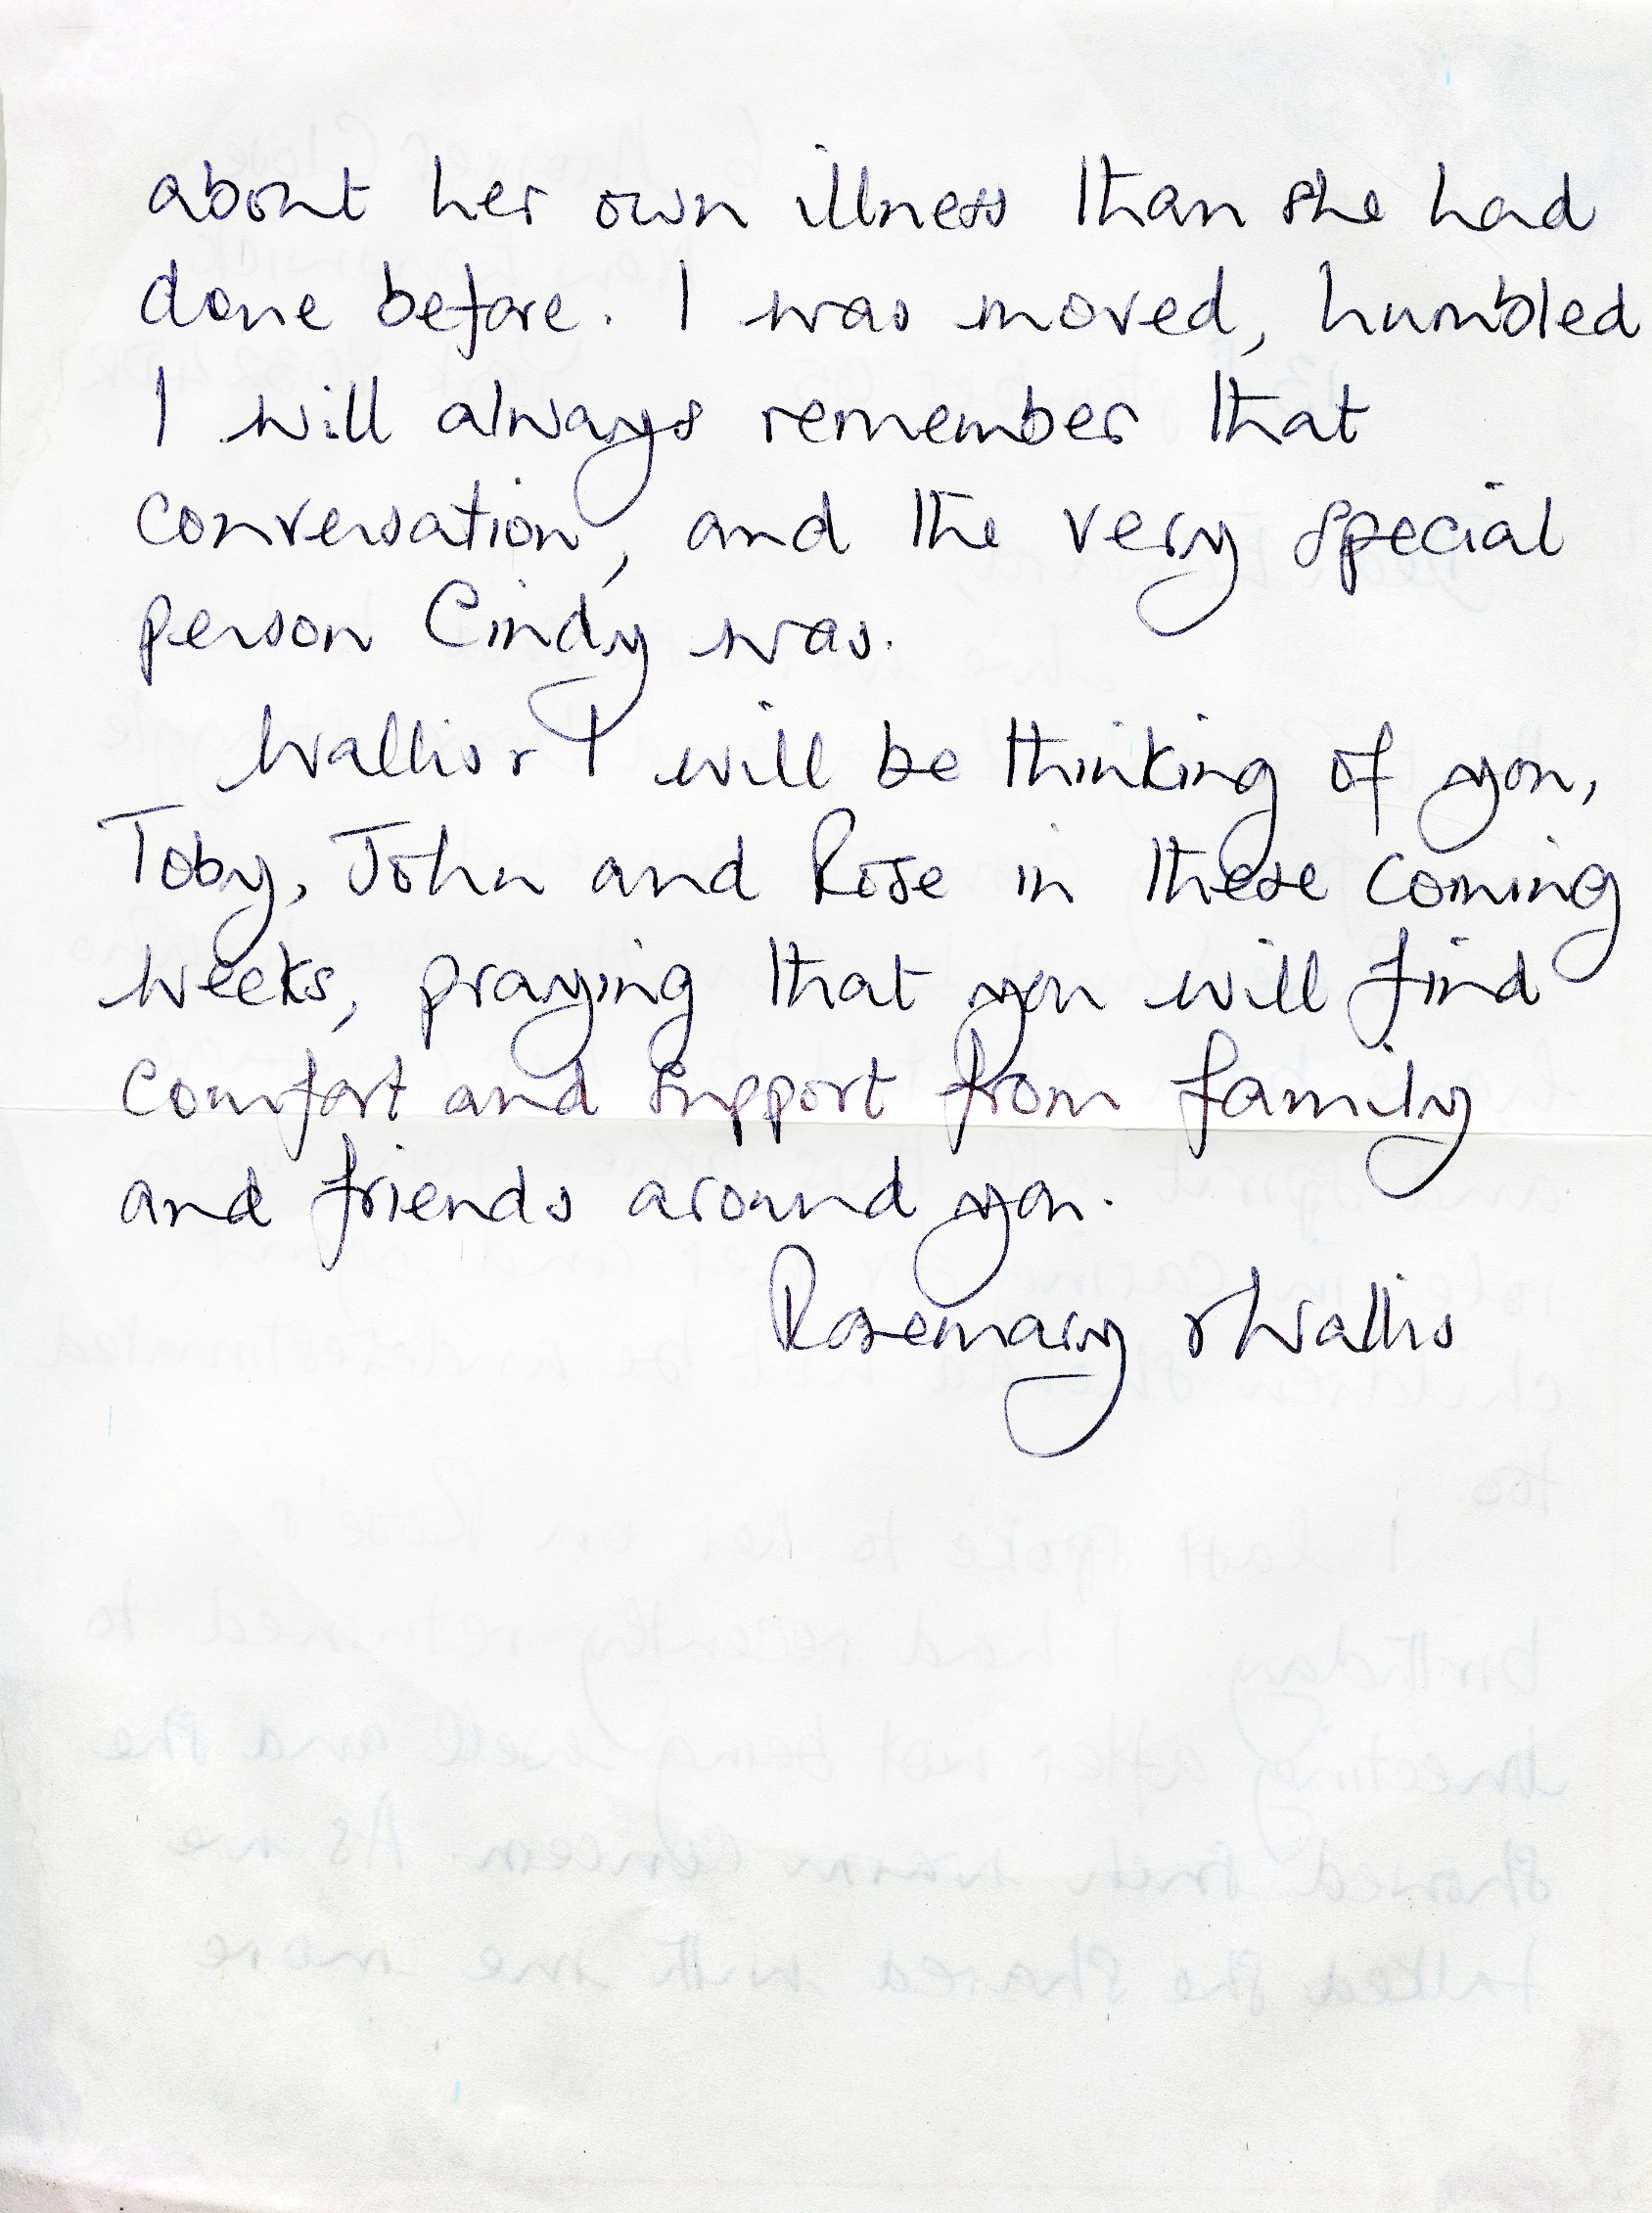 about her own illness than she had
done before. I was moved, humbled
I will always remember that
conversation, and the very special
person Cindy was.
Wallis & I will be thinking of you,
Toby, John and Rose in these coming
weeks, praying that you will find
comfort and support from family
and friends around you.
Rosemary & Wallis